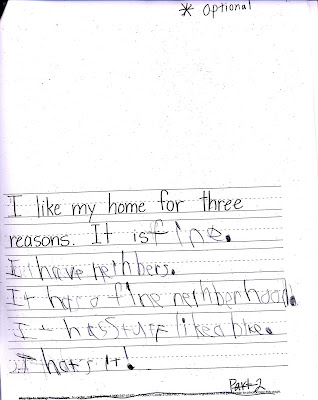 * optional
I like my home for three
reasons. It is fine.
I have neihbers.
It has a fine neihberhood.
It has stuff like a bike.
Thats it!
Part 2